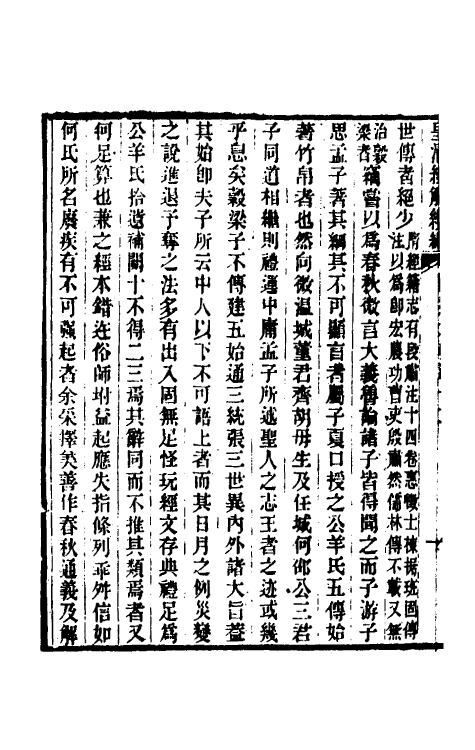 皇清經解續編
世傳者絕少隋經籍志有段肅注十四卷惠徵士棟據班固傳
注以為即宏農功曹史段肅然儒林傳不載又無
治穀
梁者竊嘗以為春秋微言大義稱論諸子皆得聞之而子游子
思孟子著其綱其不可顯言者屬子夏口授之公羊氏五傳始
著竹帛者也然向微溫城董君齊胡毋生及任城何邵公三君
子同道相繼則禮運中庸孟子所述聖人之志王者之迹或幾
乎息矣穀梁子不傳建五始通三統張三世異內外諸大旨蓋
其始即夫子所云中人以下不可語上者而其日月之例災變
之說進退予奪之法多有出入固無足怪玩經文存典禮足為
公羊氏拾遺補闕十不得二三焉其辭同而不推其類焉者又
何足算也兼之經本錯迕俗師坿益起應失指條列乖舛信如
何氏所名廢疾有不可彊起者余采擇美善作春秋通義及解